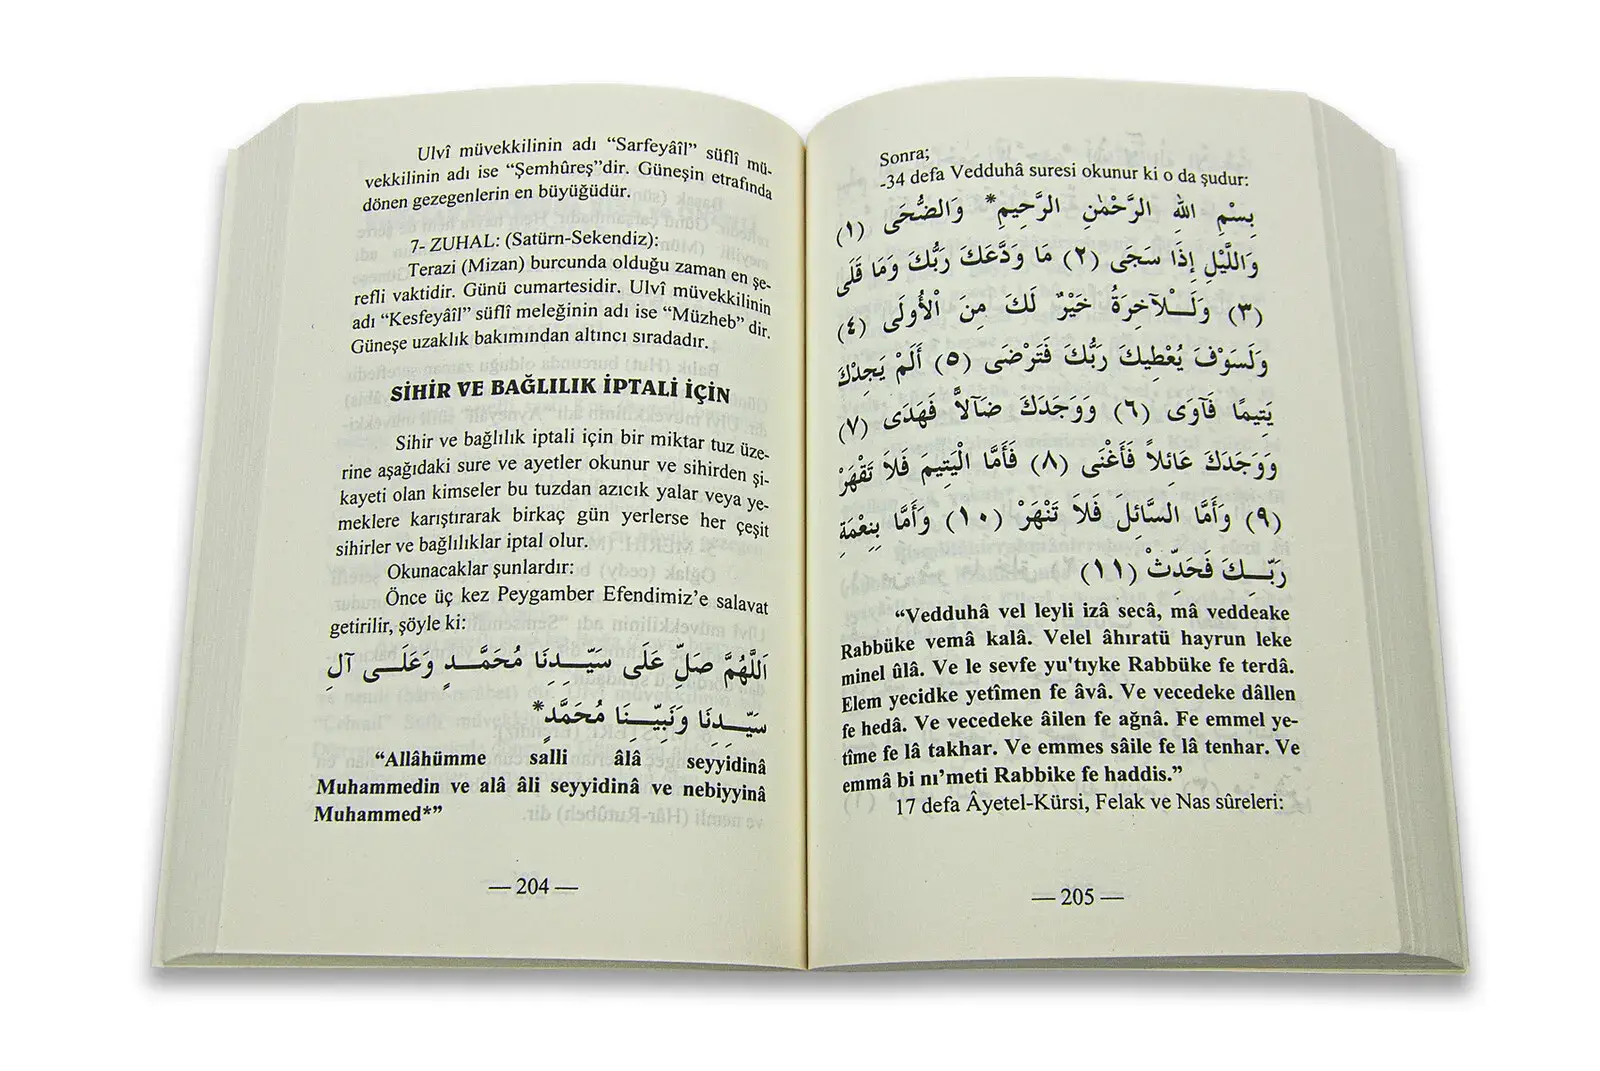 Ulvî müvekkilinin adı “Sarfeyâîl” süflî mü-
vekkilinin adı ise “Şemhûreş”dir. Güneşin etrafında
dönen gezegenlerin en büyüğüdür.
7- ZUHAL: (Satürn-Sekendiz):
Terazi (Mizan) burcunda olduğu zaman en şe-
refli vaktidir. Günü cumartesidir. Ulvî müvekkilinin
adı “Kesfeyâîl” süflî meleğinin adı ise “Müzheb” dir.
Güneşe uzaklık bakımından altıncı sıradadır.
SİHİR VE BAĞLILIK İPTALİ İÇİN
Sihir ve bağlılık iptali için bir miktar tuz üze-
rine aşağıdaki sure ve ayetler okunur ve sihirden şi-
kayeti olan kimseler bu tuzdan azıcık yalar veya ye-
meklere karıştırarak birkaç gün yerlerse her çeşit
sihirler ve bağlılıklar iptal olur.
Okunacaklar şunlardır:
Önce üç kez Peygamber Efendimiz’e salavat
getirilir, şöyle ki:
اَللَّهُمَّ صَلِّ عَلَى سَيِّدِنَا مُحَمَّدٍ وَعَلَى آلِ
سَيِّدِنَا وَنَبِيِّنَا مُحَمَّدٍ*
“Allâhümme salli âlâ seyyidinâ
Muhammedin ve alâ âli seyyidinâ ve nebiyyinâ
Muhammed*”
— 204 —
Sonra;
-34 defa Vedduhâ suresi okunur ki o da şudur:
بِسْمِ اللهِ الرَّحْمٰنِ الرَّحِيمِ* وَالضُّحَى (١)
وَاللَّيْلِ إِذَا سَجَى (٢) مَا وَدَّعَكَ رَبُّكَ وَمَا قَلَى
(٣) وَلَـلْآخِرَةُ خَيْرٌ لَكَ مِنَ الْأُولَى (٤)
وَلَسَوْفَ يُعْطِيكَ رَبُّكَ فَتَرْضَى (٥) أَلَمْ يَجِدْكَ
يَتِيمًا فَآوَى (٦) وَوَجَدَكَ ضَآلاًّ فَهَدَى (٧)
وَوَجَدَكَ عَائِلاً فَأَغْنَى (٨) فَأَمَّا الْيَتِيمَ فَلاَ تَقْهَرْ
(٩) وَأَمَّا السَّائِلَ فَلاَ تَنْهَرْ (١٠) وَأَمَّا بِنِعْمَةِ
رَبِّـكَ فَحَدِّثْ (١١)
“Vedduhâ vel leyli izâ secâ, mâ veddeake
Rabbüke vemâ kalâ. Velel âhıratü hayrun leke
minel ûlâ. Ve le sevfe yu'tıyke Rabbüke fe terdâ.
Elem yecidke yetîmen fe âvâ. Ve vecedeke dâllen
fe hedâ. Ve vecedeke âilen fe ağnâ. Fe emmel ye-
tîme fe lâ takhar. Ve emmes sâile fe lâ tenhar. Ve
emmâ bi nı’meti Rabbike fe haddis.”
17 defa Âyetel-Kürsi, Felak ve Nas sûreleri:
— 205 —